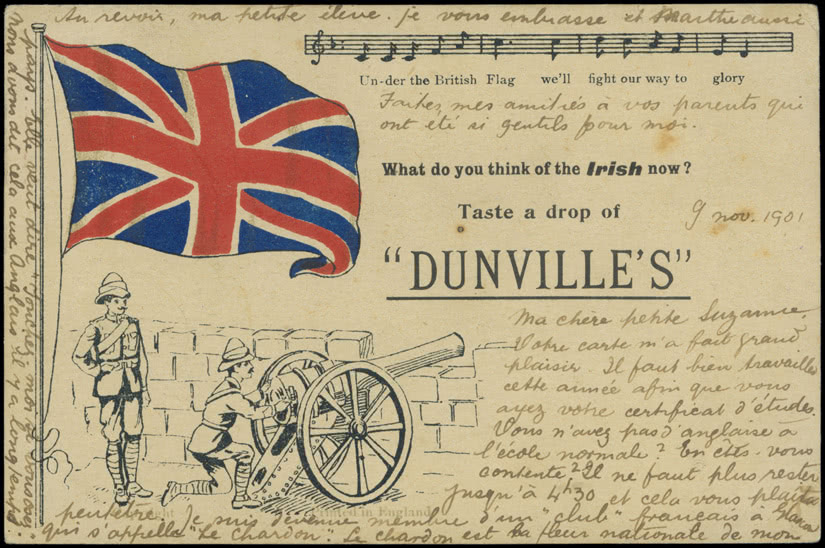 Au revoir, ma petite élève. je vous embrasse et Marthe aussi
Un-der the British Flag we'll fight our way to glory
Faites mes amitiés à vos parents qui
ont été si gentils pour moi.
What do you think of the Irish now?
Taste a drop of
9 nov. 1901
"DUNVILLE'S"
Ma chère petite Suzanne.
Votre carte m'a fait grand
plaisir. Il faut bien travailler
cette année afin que vous
ayez votre certificat d'études.
Vous n'avez pas d'anglaise à
l'école normale? En êtes-vous
contente? Il ne faut plus rester
jusqu'à 4h30 et cela vous plaît
peutêtre. Je suis devenue membre d'un "club" français à
qui s'appelle "Le Chardon". Le chardon est la fleur nationale de mon
pays. Elle veut dire "
nous avons dit cela aux Anglais il y a longtemps.
Printed in England